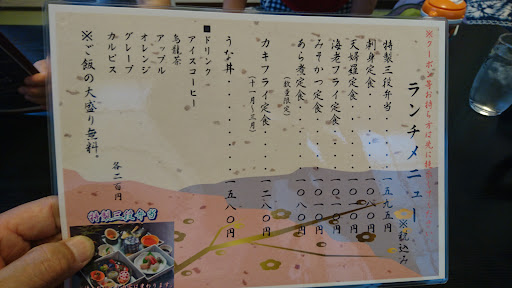 ※クーポン等お持ち方は先に提示して下さい
ランチメニュー ※税込み
特製三段弁当・・・・・一五九五円
刺身定食・・・・・・・一〇八〇円
天婦羅定食・・・・・・一〇一〇円
海老フライ定食・・・・一〇一〇円
みそかつ定食・・・・・一〇一〇円
あら煮定食・・・・・・一〇八〇円
(数量限定)
カキフライ定食・・・・一二八〇円
(十一月〜三月)
うな丼・・・・・・・・一五八〇円
■ドリンク
アイスコーヒー
烏龍茶
アップル
オレンジ
グレープ
カルピス
各二百円
※ご飯の大盛り無料。
特製三段弁当